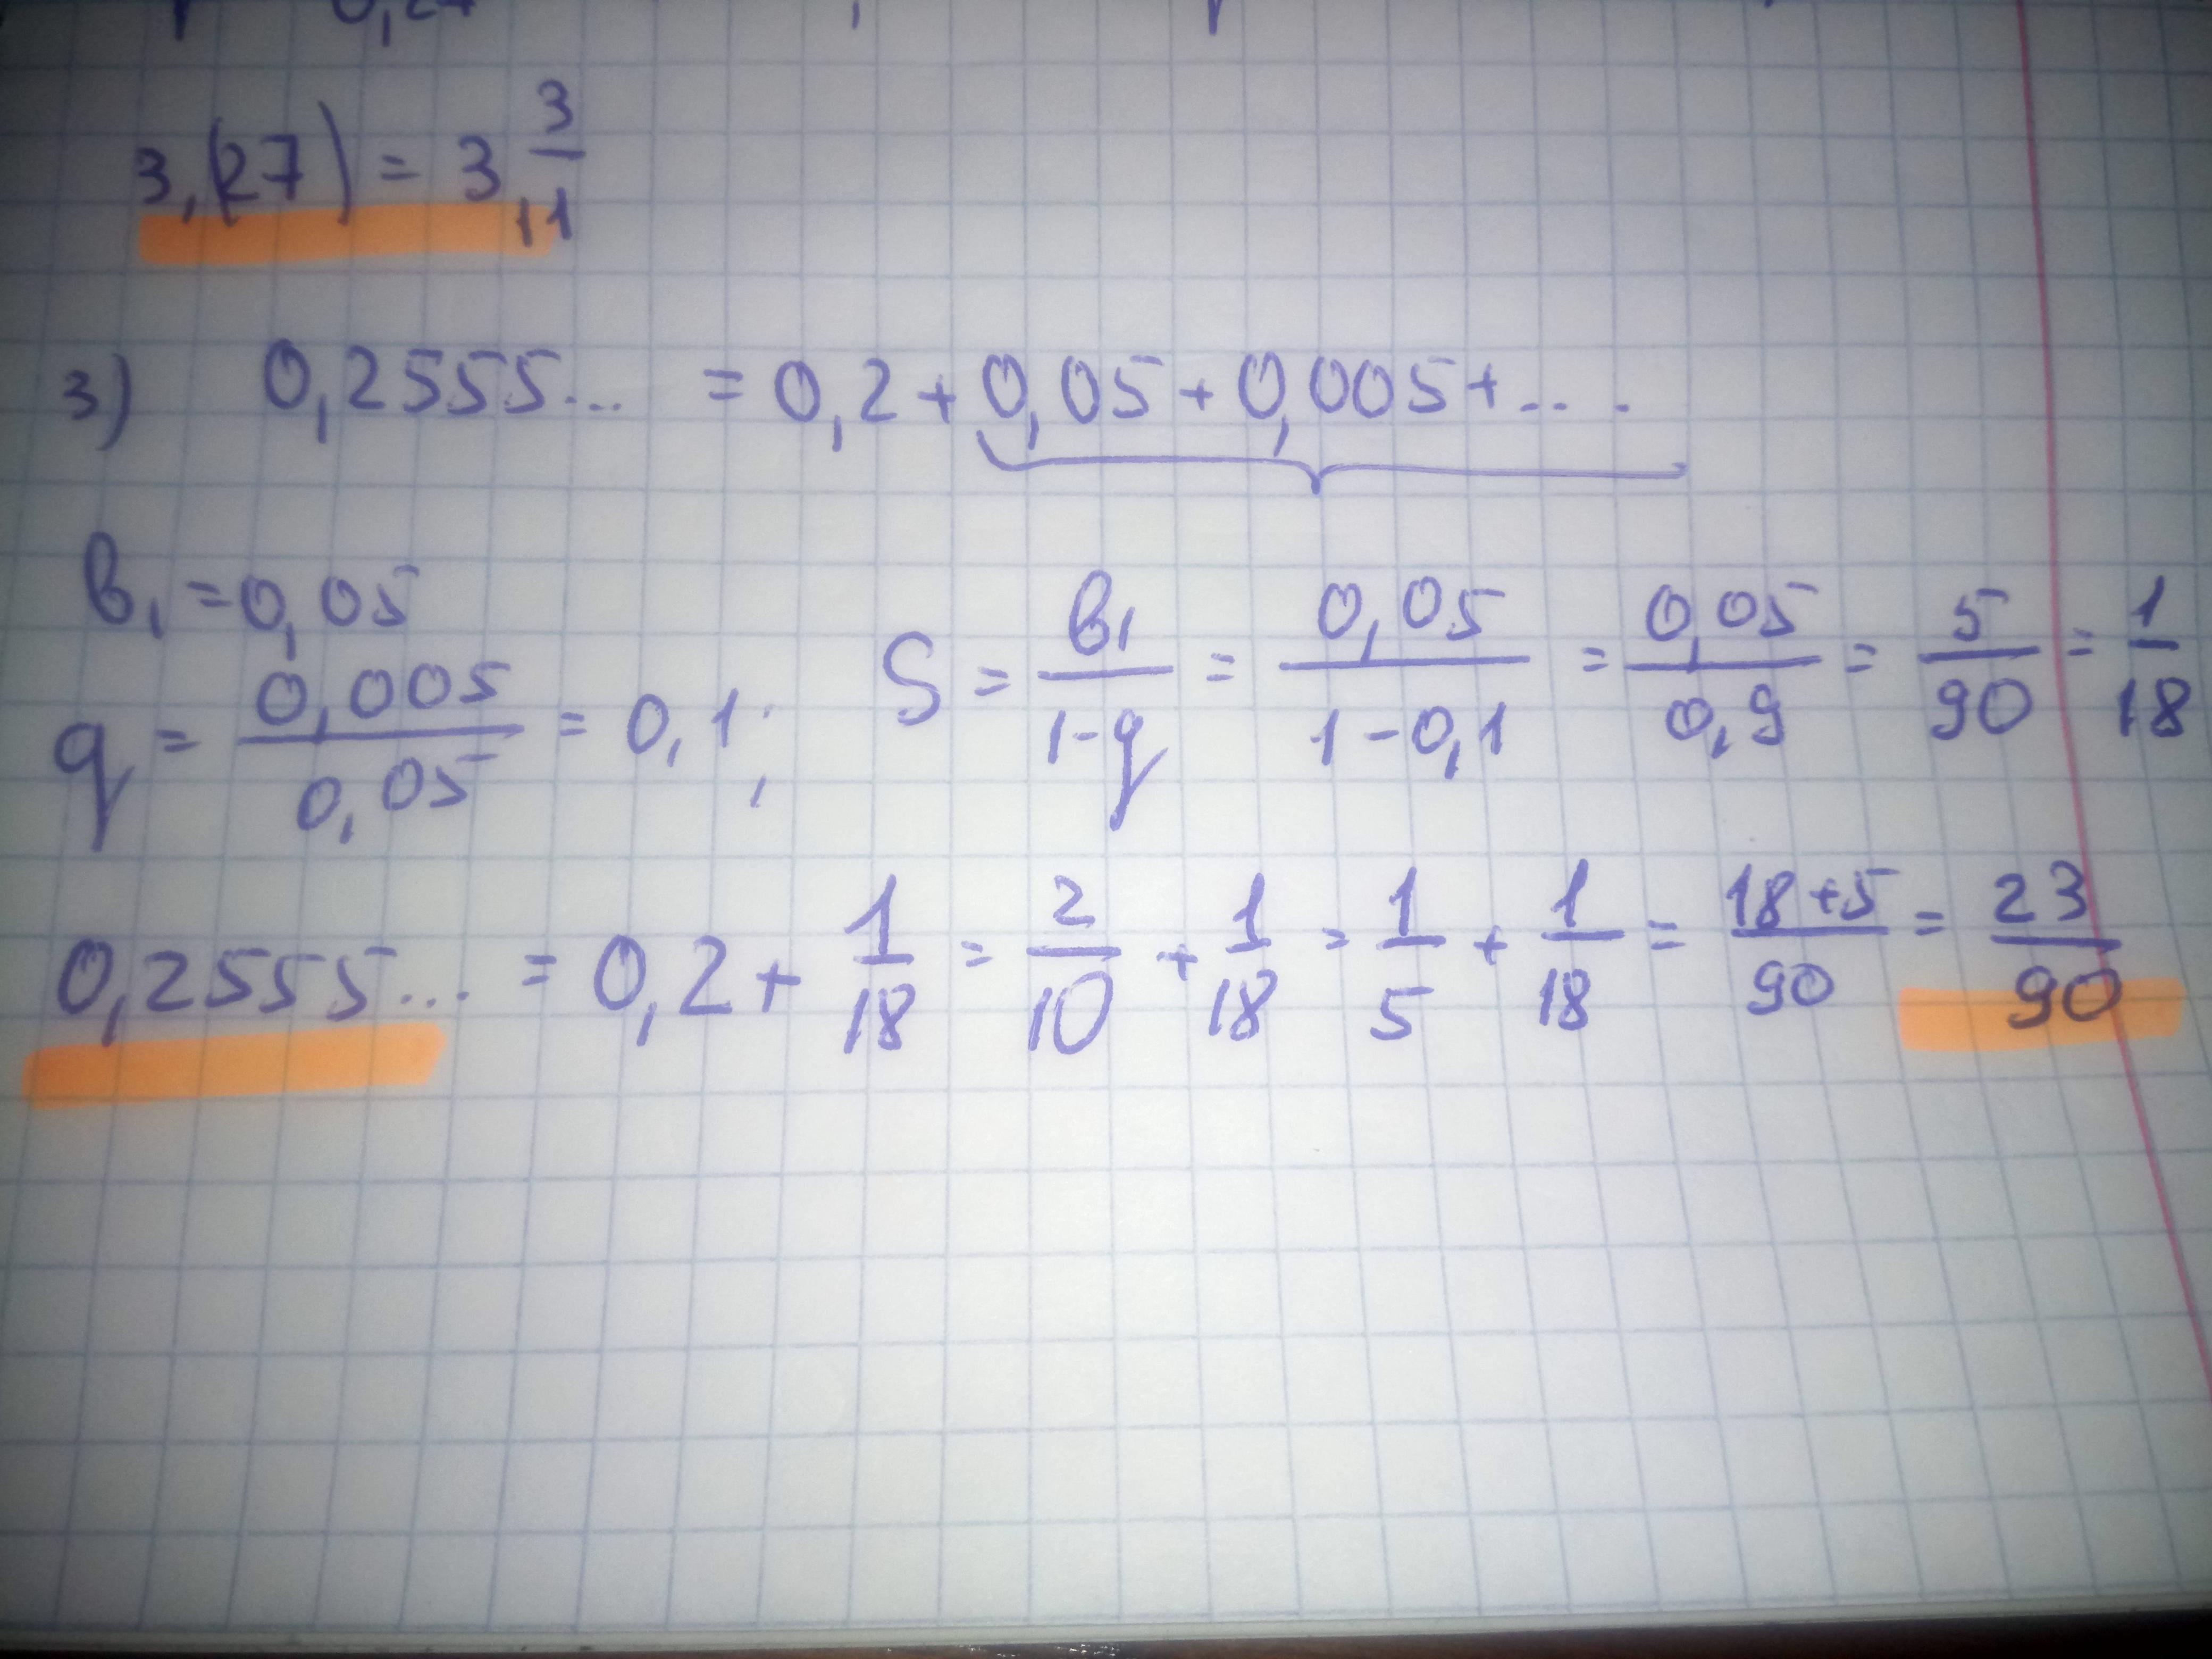 3,(27) = 3 3/11
3) 0,2555... = 0,2 + 0,05 + 0,005 + ....
b₁ = 0,05
q = 0,005/0,05 = 0,1; S = b₁/1-q = 0,05/1-0,1 = 0,05/0,9 = 5/90 = 1/18
0,2555... = 0,2 + 1/18 = 2/10 + 1/18 = 1/5 + 1/18 = 18+5/90 = 23/90